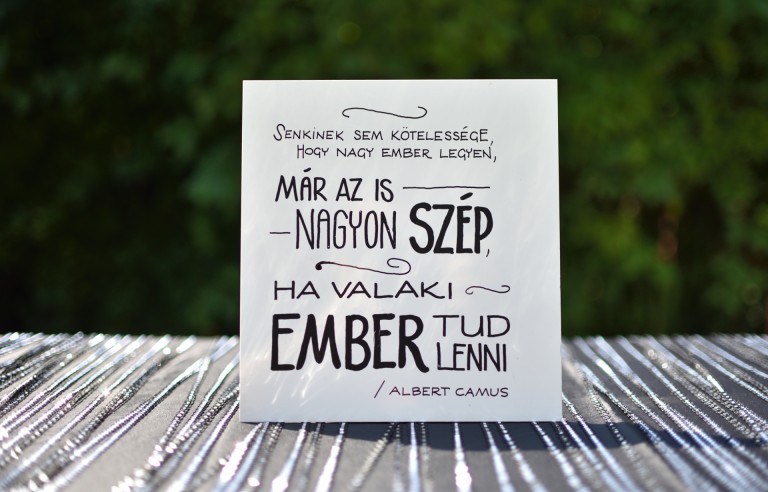 SENKINEK SEM KÖTELESSÉGE,
HOGY NAGY EMBER LEGYEN,
MÁR AZ IS
NAGYON SZÉP,
HA VALAKI
EMBER TUD
LENNI
/ ALBERT CAMUS